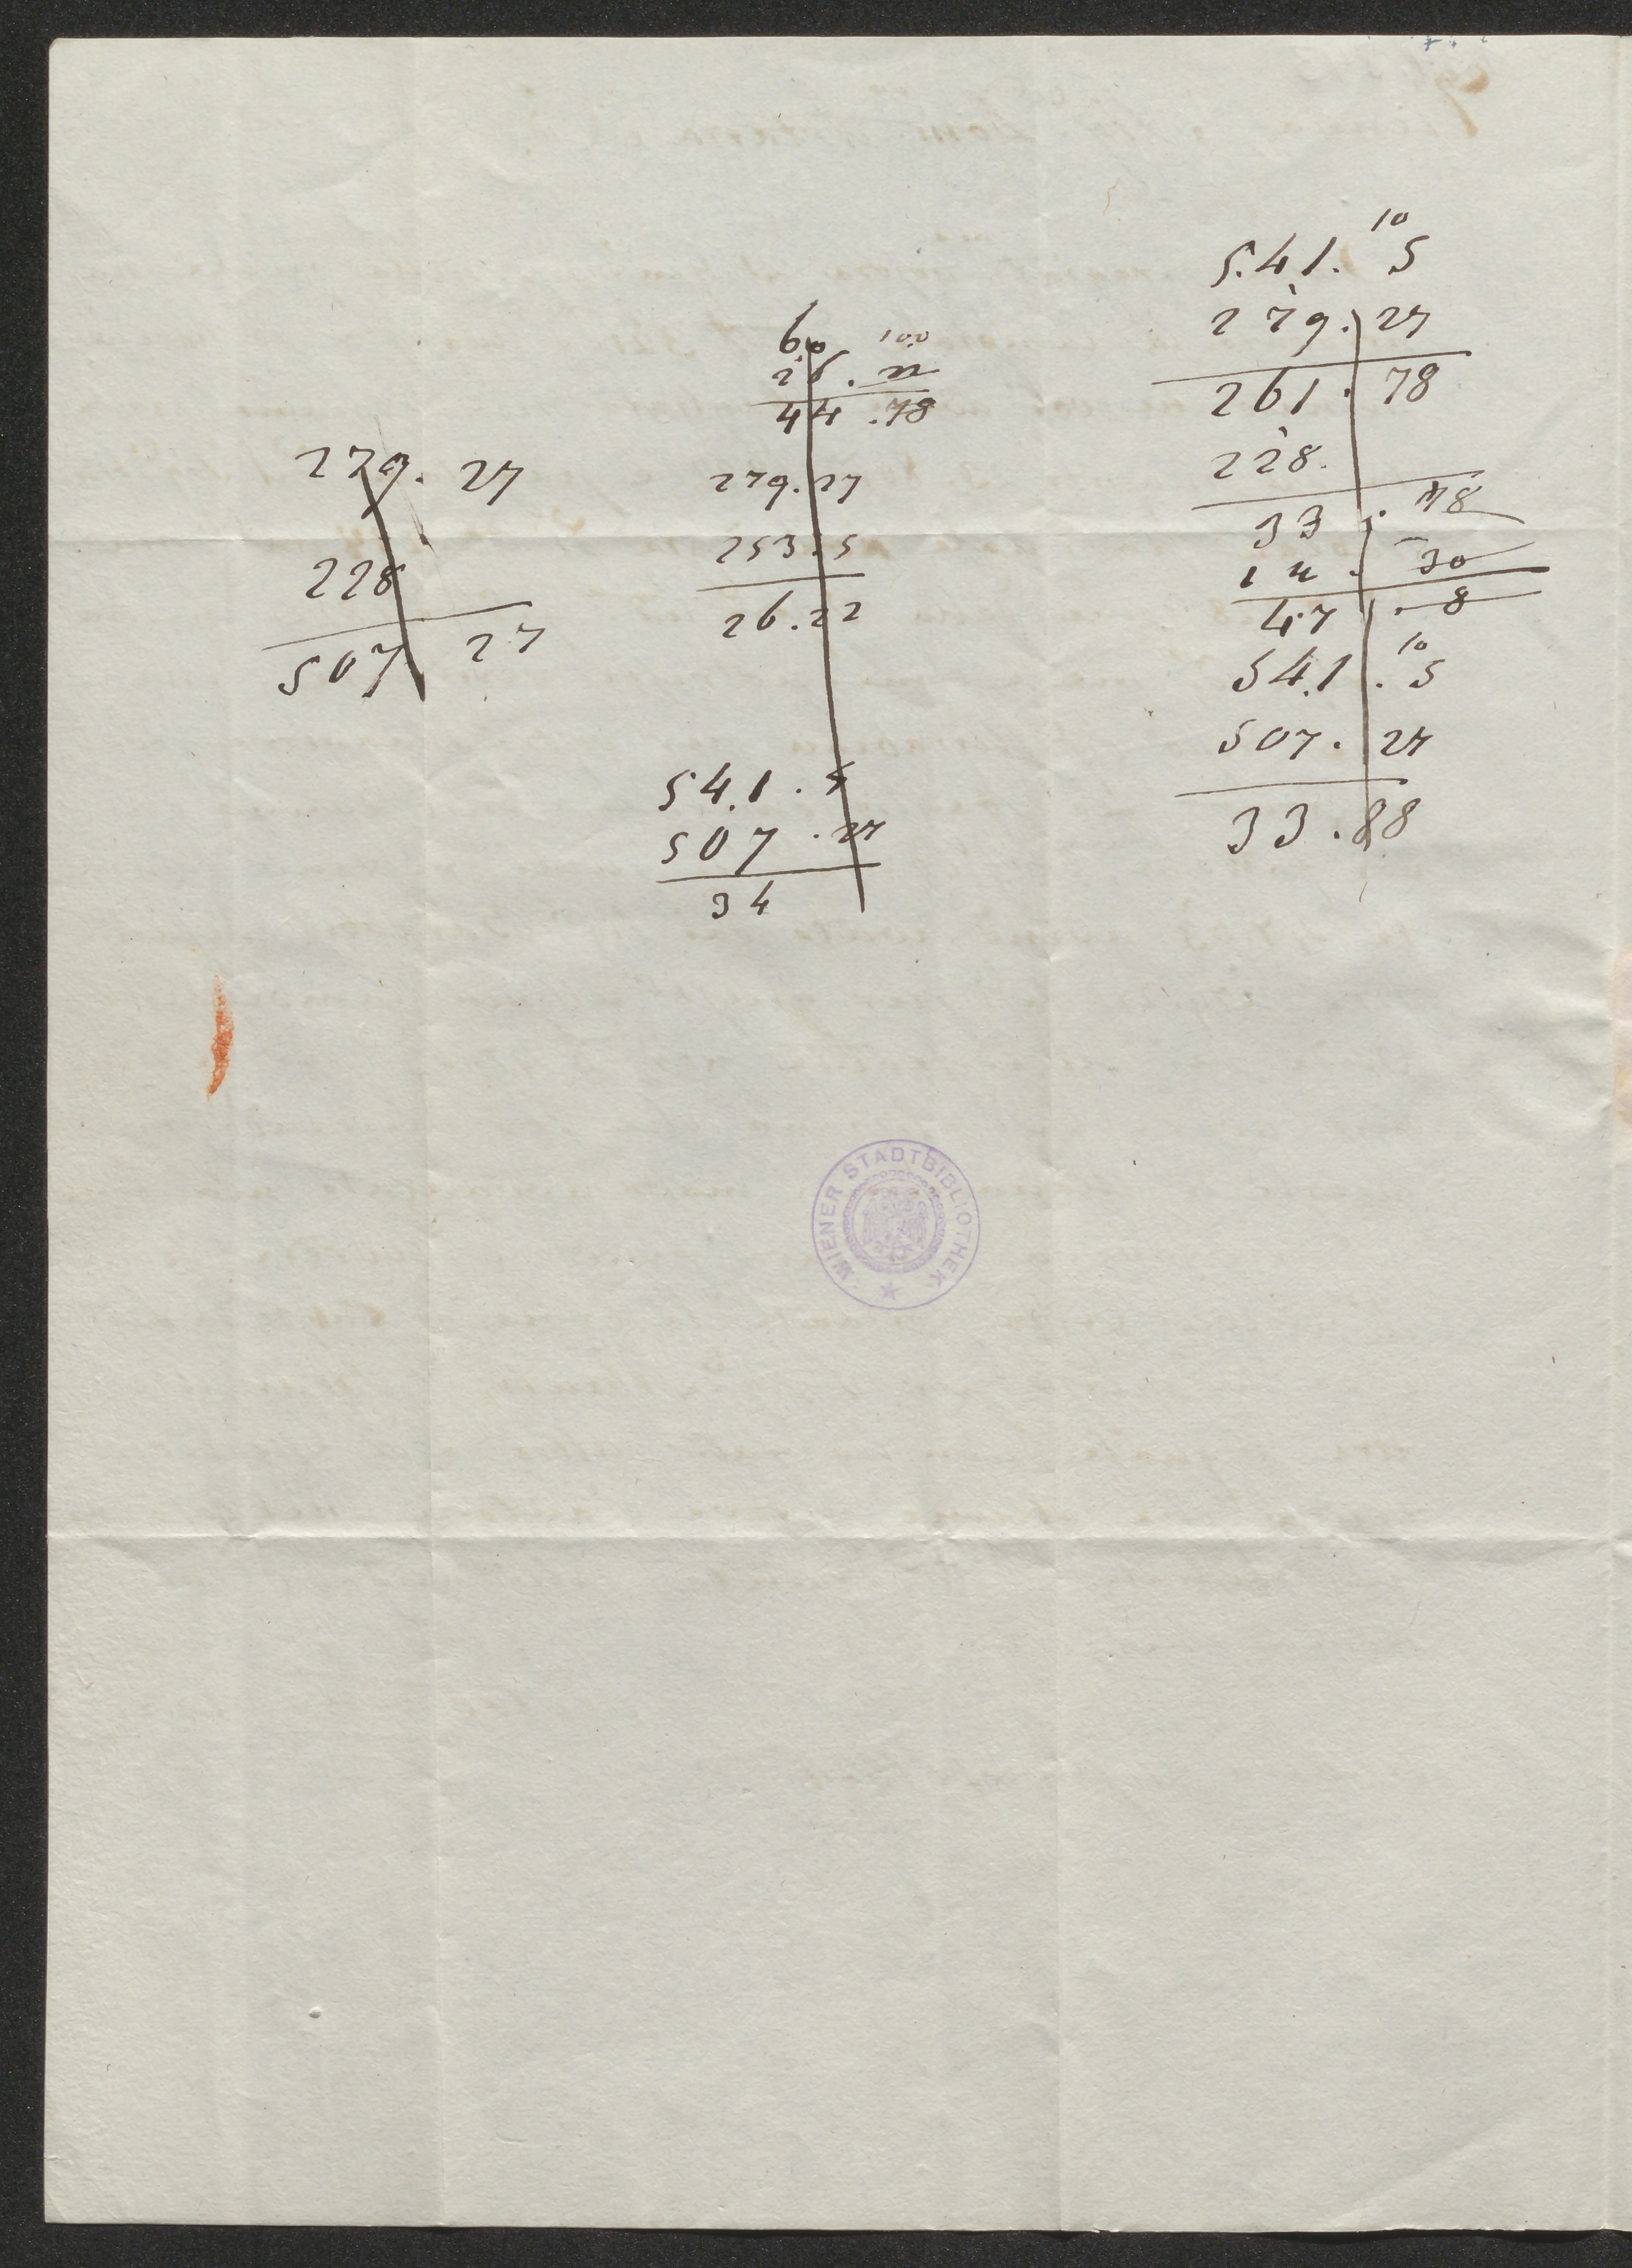 279. 27
228
507 27
60 100
44 .78
279. 27
253. 5
26. 22
541. 5
507. 27
34
10
541. 5
279. 27
261. 78
228.
33. 78
14. 30
47. 8
10
541. 5
507. 27
33. 88
WIENER STADTBIBLIOTHEK